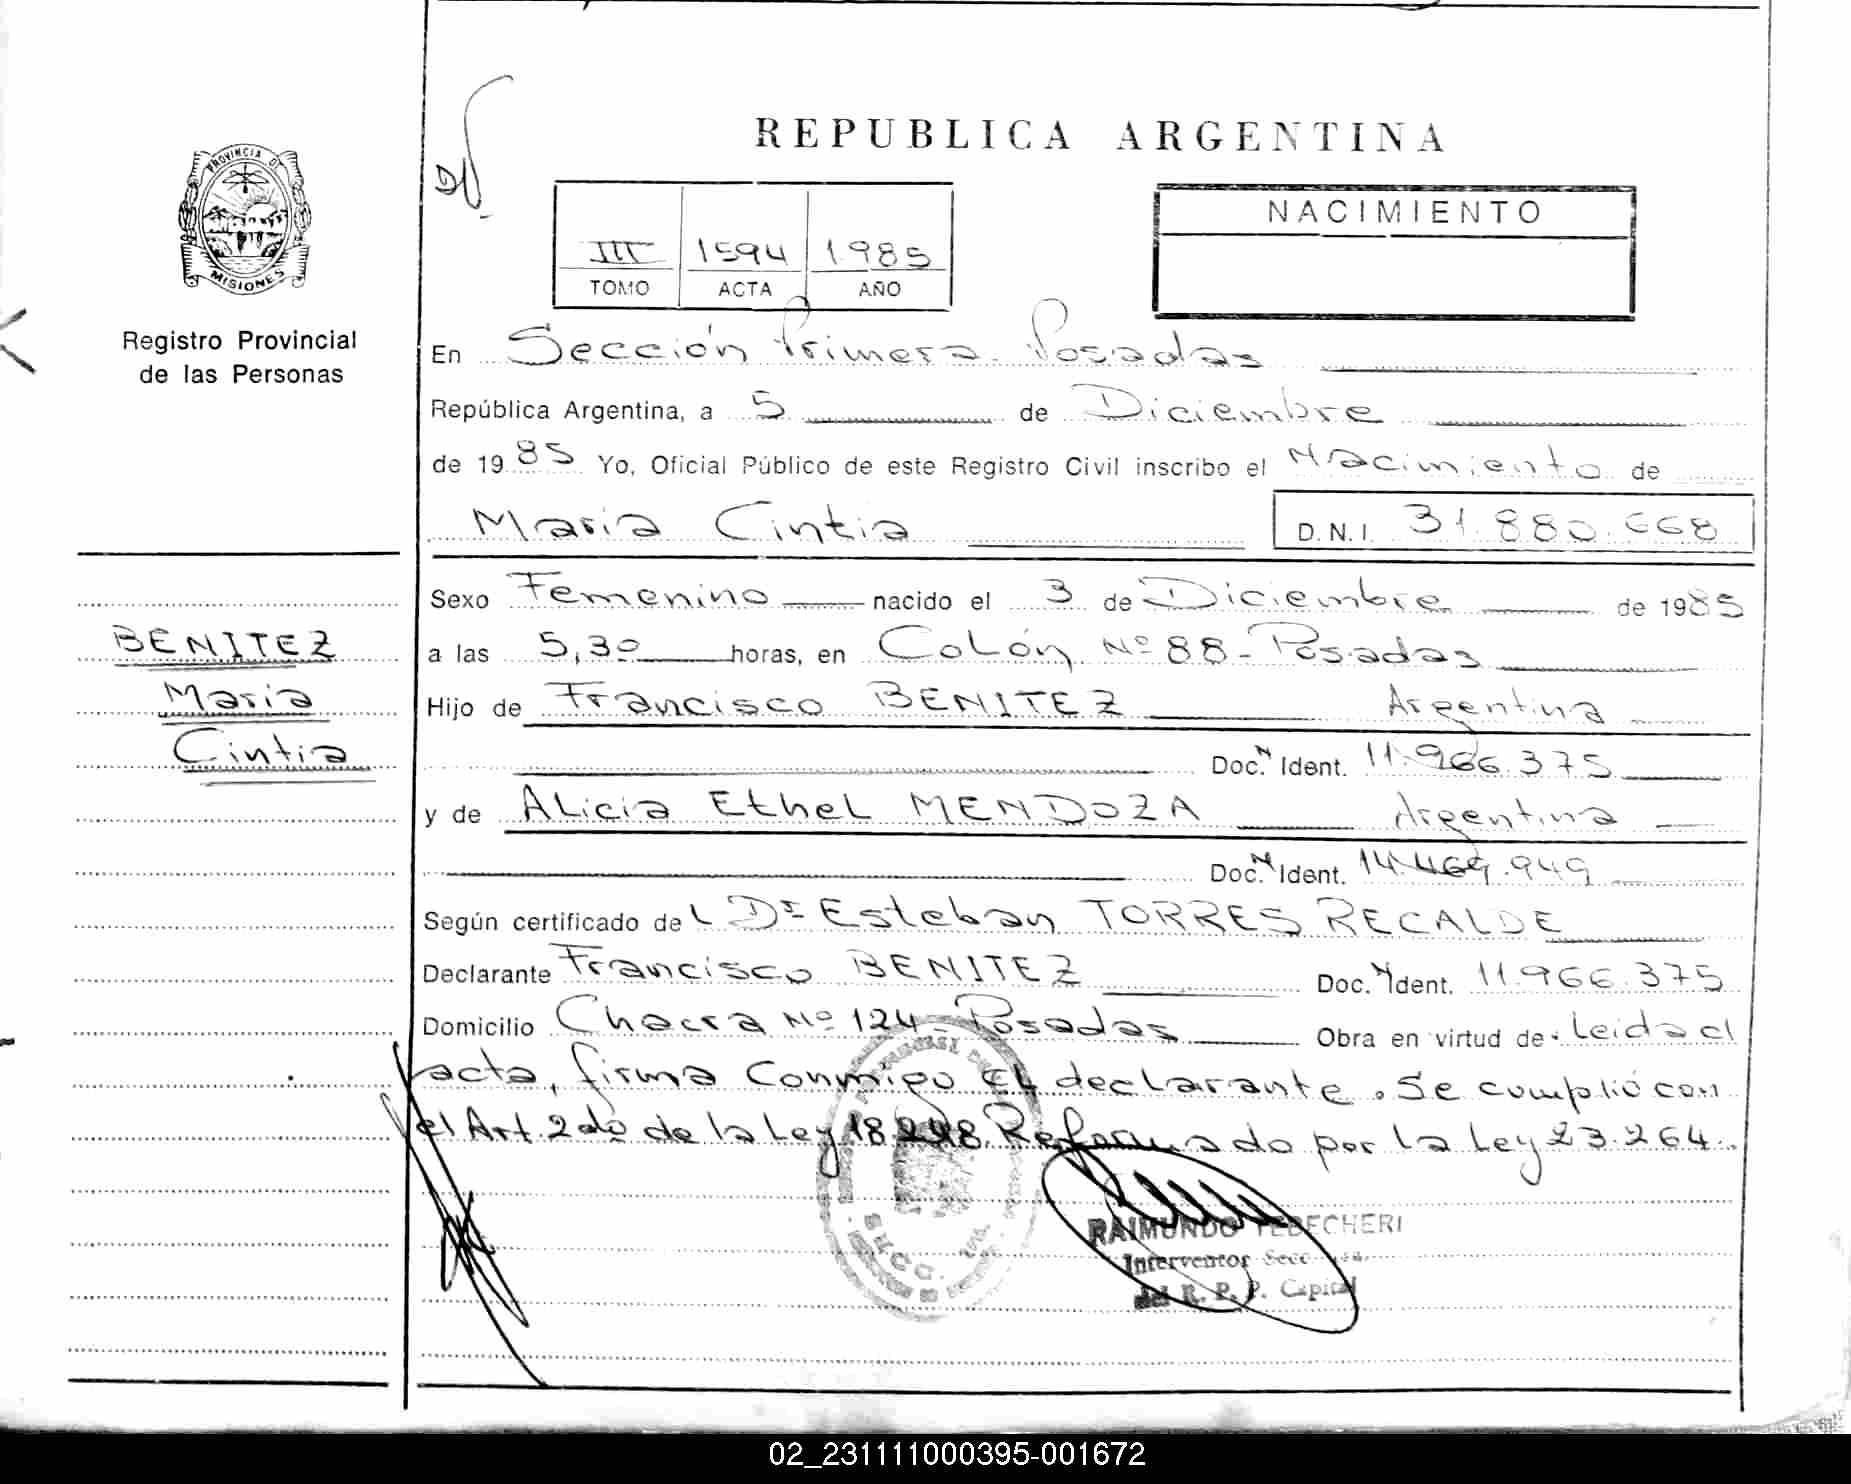 REPUBLICA ARGENTINA
PROVINCIA DE
MISIONES
Registro Provincial
de las Personas
III 1594 1985
TOMO ACTA AÑO
NACIMIENTO
En Sección Primera Posadas
República Argentina, a 5 de Diciembre
de 1985 Yo, Oficial Público de este Registro Civil inscribo el Nacimiento de
Maria Cintia D.N.I. 31.880.668
Sexo Femenino nacido el 3 de Diciembre de 1985
a las 5,30 horas, en Colón Nº 88 - Posadas
Hijo de Francisco BENITEZ Argentina
Doc. N Ident. 11.966.375
y de Alicia Ethel MENDOZA Argentina
Doc. N Ident. 14.469.949
Según certificado del Dr Esteban TORRES RECALDE
Declarante Francisco BENITEZ Doc. N Ident. 11.966.375
Domicilio Chacra Nº 124 - Posadas Obra en virtud de: Leida el
acta, firma conmigo el declarante. Se cumplió con
el Art. 2do de la Ley 18.248. Reformado por la Ley 23.264.
BENITEZ
Maria
Cintia
RAIMUNDO TEBECHERI
Interventor
del R. P. P. Capital
02_231111000395-001672